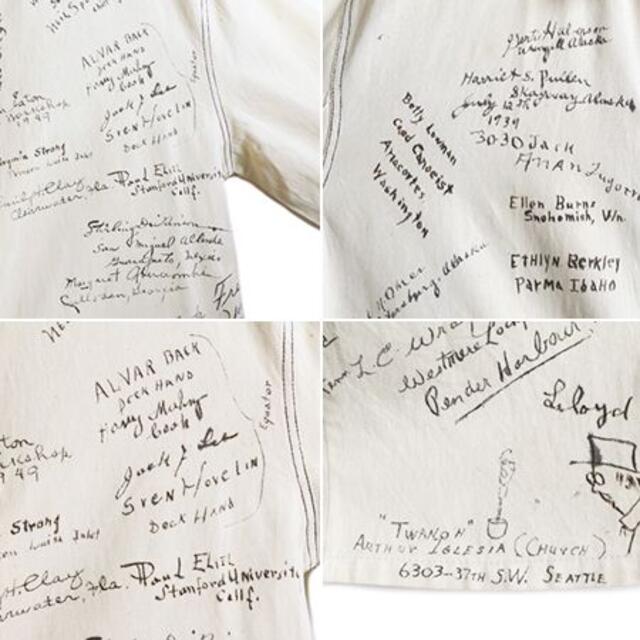 ALVAR BACK
DECK HAND
Harry
Cook
Jack J Lee
SVEN HOVELIN
DECK HAND
Equator
Eaton
1949
Strong
H. Clay
Clearwater, Fla.
Paul Ehill
Stanford University,
Calif.
San Miguel Allende
Guanajuato, Mexico
Margaret Abercrombie
Georgia
Gert Halvorson
Wrangell Alaska
Harriet S. Pullen
Skagway Alaska
July 12th
1939
30-30 JACK
Betty Lowman
Coed Canoeist
Anacortes,
Washington
Ellen Burns
Snohomish, Wn.
ETHLYN BERKLEY
PARMA IDAHO
Alaska
ALVAR BACK
DECK HAND
Harry
Cook
Jack J Lee
SVEN HOVELIN
DECK HAND
Equator
1949
Strong
H. Clay
Clearwater, Fla.
Paul Ehill
Stanford University,
Calif.
L. C.
Westmere
Pender Harbour
Lloyd
"TWANOH"
ARTHUR IGLESIA (CHURCH)
6303-37TH S.W. SEATTLE